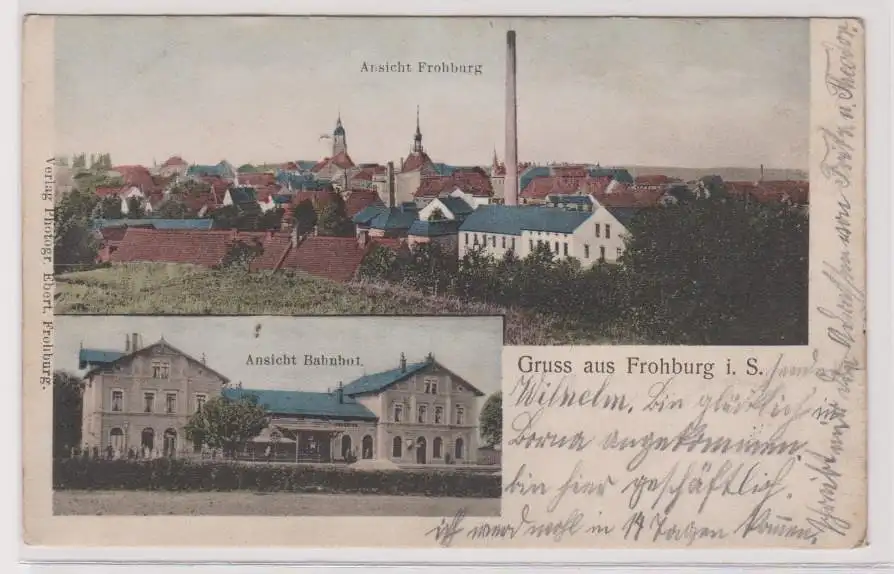 Ansicht Frohburg
Verlag Photogr. Ebert, Frohburg.
Ansicht Bahnhof.
Gruss aus Frohburg i. S.
Wilhelm. Bin glücklich in
Borna angekommen
bin hier geschäftlich.
ich werd wohl in 14 Tagen kommen.
von Fritz u. Theodor.